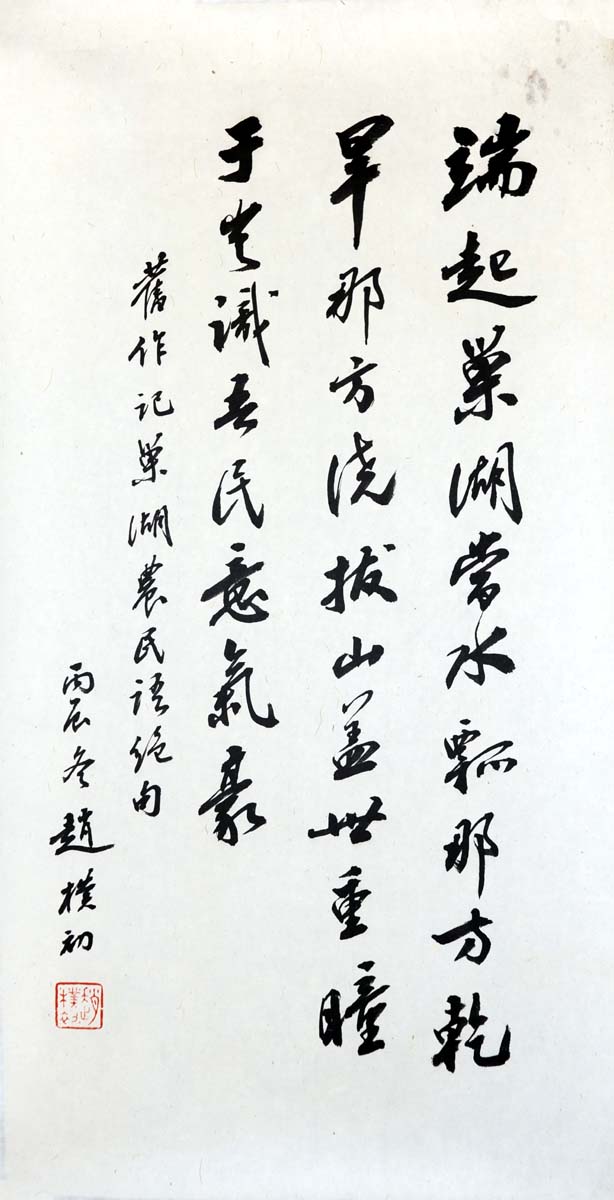 端起巢湖當水瓢那方乾
旱那方浇拔山盖世重瞳
于豈識吾民意氣豪
舊作記巢湖農民語絶句
丙辰冬趙樸初
趙樸初